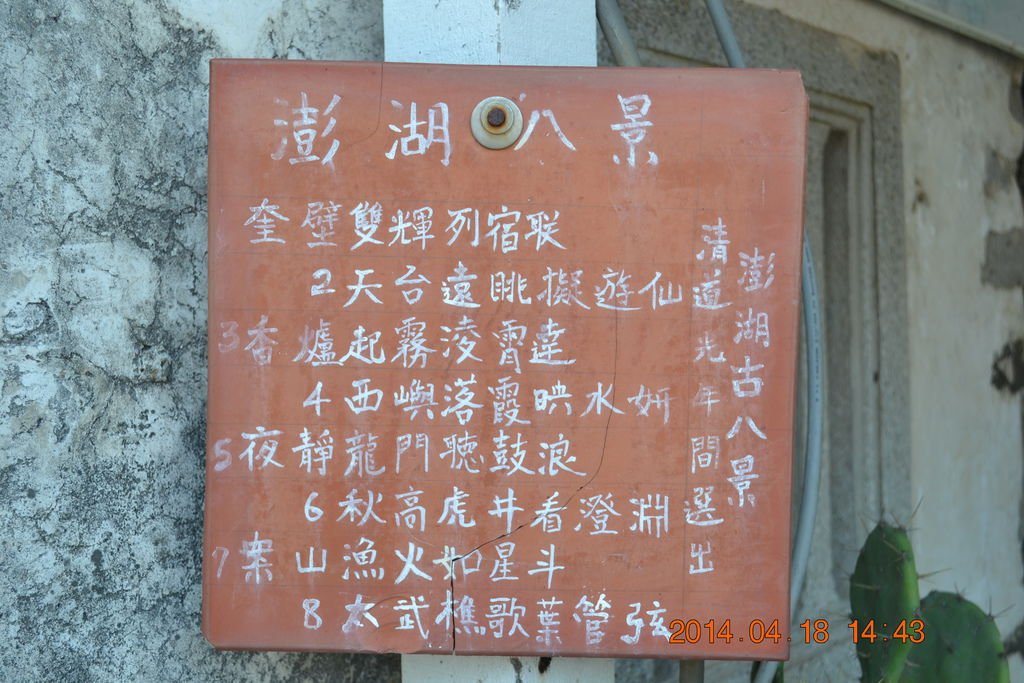 澎湖八景
奎壁雙輝列宿联
2天台遠眺擬遊仙
3香爐起霧淩霄達
4西嶼落霞映水妍
5夜靜龍門聽鼓浪
6秋高虎井看澄淵
7案山漁火如星斗
8太武樵歌葉管弦
澎湖古八景
清道光年間選出
2014.04.18 14:43